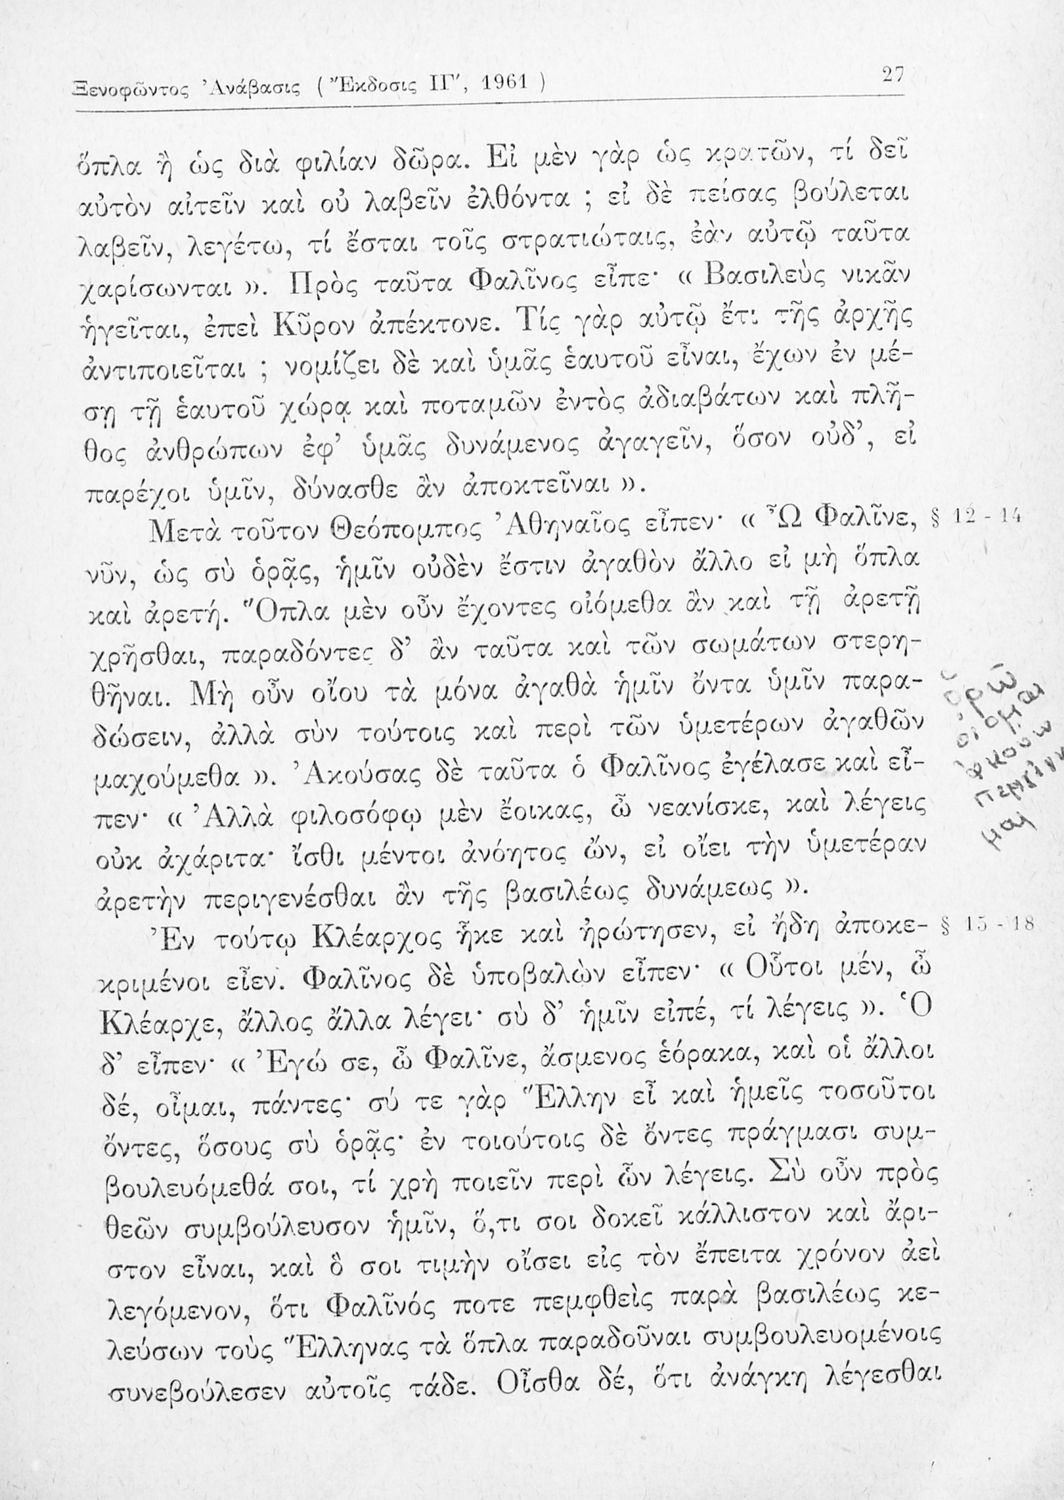 Ξενοφῶντος Ἀνάβασις ( Ἔκδοσις ΙΓ′, 1961 ) 27
ὅπλα ἢ ὡς διὰ φιλίαν δῶρα. Εἰ μὲν γὰρ ὡς κρατῶν, τί δεῖ
αὐτὸν αἰτεῖν καὶ οὐ λαβεῖν ἐλθόντα ; εἰ δὲ πείσας βούλεται
λαβεῖν, λεγέτω, τί ἔσται τοῖς στρατιώταις, ἐὰν αὐτῷ ταῦτα
χαρίσωνται ». Πρὸς ταῦτα Φαλῖνος εἶπε· « Βασιλεὺς νικᾶν
ἡγεῖται, ἐπεὶ Κῦρον ἀπέκτονε. Τίς γὰρ αὐτῷ ἔτι τῆς ἀρχῆς
ἀντιποιεῖται ; νομίζει δὲ καὶ ὑμᾶς ἑαυτοῦ εἶναι, ἔχων ἐν μέ-
σῃ τῇ ἑαυτοῦ χώρᾳ καὶ ποταμῶν ἐντὸς ἀδιαβάτων καὶ πλῆ-
θος ἀνθρώπων ἐφ’ ὑμᾶς δυνάμενος ἀγαγεῖν, ὅσον οὐδ’, εἰ
παρέχοι ὑμῖν, δύνασθε ἂν ἀποκτεῖναι ».
Μετὰ τοῦτον Θεόπομπος Ἀθηναῖος εἶπεν· « Ὦ Φαλῖνε, § 12 - 14
νῦν, ὡς σὺ ὁρᾷς, ἡμῖν οὐδὲν ἔστιν ἀγαθὸν ἄλλο εἰ μὴ ὅπλα
καὶ ἀρετή. Ὅπλα μὲν οὖν ἔχοντες οἰόμεθα ἂν καὶ τῇ ἀρετῇ
χρῆσθαι, παραδόντες δ’ ἂν ταῦτα καὶ τῶν σωμάτων στερη-
θῆναι. Μὴ οὖν οἴου τὰ μόνα ἀγαθὰ ἡμῖν ὄντα ὑμῖν παρα-
δώσειν, ἀλλὰ σὺν τούτοις καὶ περὶ τῶν ὑμετέρων ἀγαθῶν
μαχούμεθα ». Ἀκούσας δὲ ταῦτα ὁ Φαλῖνος ἐγέλασε καὶ εἶ-
πεν· « Ἀλλὰ φιλοσόφῳ μὲν ἔοικας, ὦ νεανίσκε, καὶ λέγεις
οὐκ ἀχάριτα· ἴσθι μέντοι ἀνόητος ὤν, εἰ οἴει τὴν ὑμετέραν
ἀρετὴν περιγενέσθαι ἂν τῆς βασιλέως δυνάμεως ».
Ἐν τούτῳ Κλέαρχος ἧκε καὶ ἠρώτησεν, εἰ ἤδη ἀποκε- § 15 - 18
κριμένοι εἶεν. Φαλῖνος δὲ ὑποβαλὼν εἶπεν· « Οὗτοι μέν, ὦ
Κλέαρχε, ἄλλος ἄλλα λέγει· σὺ δ’ ἡμῖν εἰπέ, τί λέγεις ». Ὁ
δ’ εἶπεν· « Ἐγώ σε, ὦ Φαλῖνε, ἄσμενος ἑόρακα, καὶ οἱ ἄλλοι
δέ, οἶμαι, πάντες· σύ τε γὰρ Ἕλλην εἶ καὶ ἡμεῖς τοσοῦτοι
ὄντες, ὅσους σὺ ὁρᾷς· ἐν τοιούτοις δὲ ὄντες πράγμασι συμ-
βουλευόμεθά σοι, τί χρὴ ποιεῖν περὶ ὧν λέγεις. Σὺ οὖν πρὸς
θεῶν συμβούλευσον ἡμῖν, ὅ,τι σοι δοκεῖ κάλλιστον καὶ ἄρι-
στον εἶναι, καὶ ὅ σοι τιμὴν οἴσει εἰς τὸν ἔπειτα χρόνον ἀεὶ
λεγόμενον, ὅτι Φαλῖνός ποτε πεμφθεὶς παρὰ βασιλέως κε-
λεύσων τοὺς Ἕλληνας τὰ ὅπλα παραδοῦναι συμβουλευομένοις
συνεβούλεσεν αὐτοῖς τάδε. Οἶσθα δέ, ὅτι ἀνάγκη λέγεσθαι
ὁρῶ
οἴομαι
ἀκούω
μαι